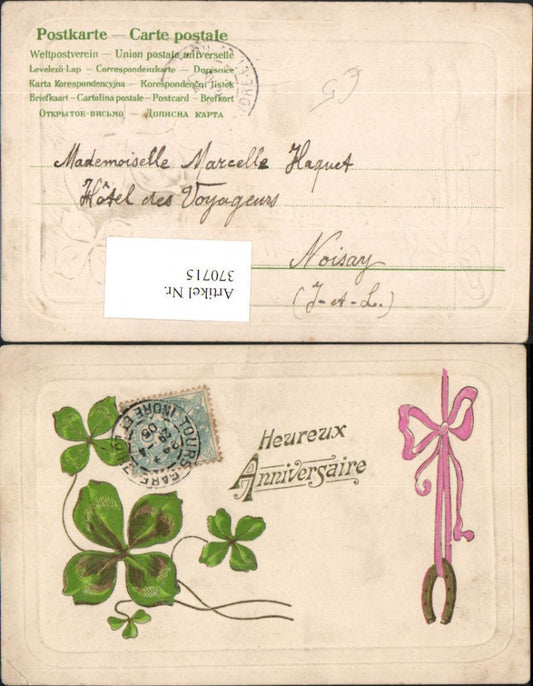 Postkarte — Carte postale
Weltpostverein – Union postale universelle
Levelező-Lap – Correspondenzkarte – Dopisnice
Karta Korespondencyjna – Korespondenční lístek
Briefkaart – Cartolina postale – Postcard – Brefkort
Открытое-письмо – Дописна карта
Mademoiselle Marcelle Haquet
Hôtel des Voyageurs
Noisay
(I-et-L.)
Artikel Nr.
370715
TOURS-GARE
INDRE ET
05
Heureux
Anniversaire